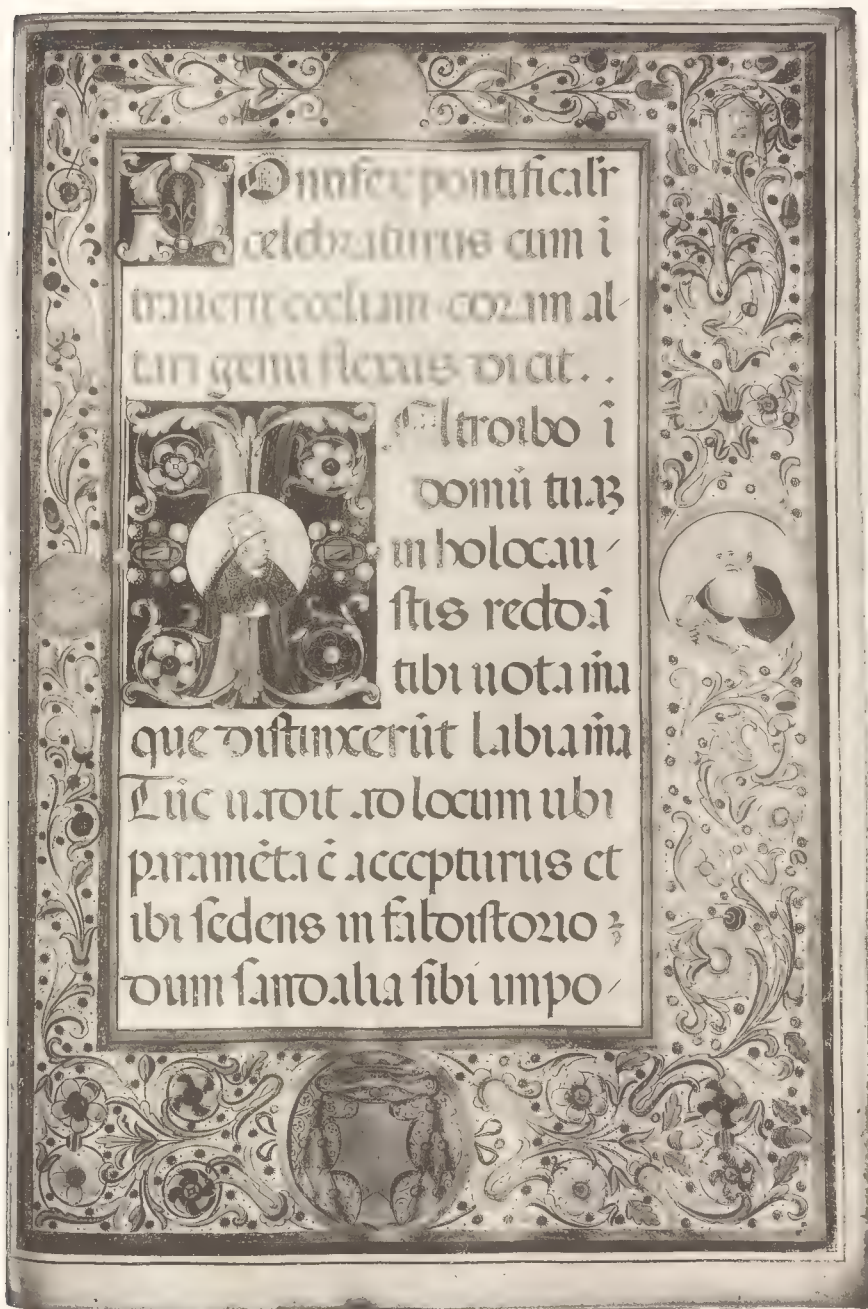 POntifex pontificalr̃
celebraturus cum ĩ
trauerit eccliam coram al/
tari genu flexus dicit..
INtroibo ĩ
domũ tuaꝫ
in holocau/
stis reddã
tibi uota m̃a
que distinxerũt labia m̃a
Tũc uadit ad locum ubi
paramẽta ẽ accepturus et
ibi sedens in faldistorio ⁊
dum sandalia sibi impo/